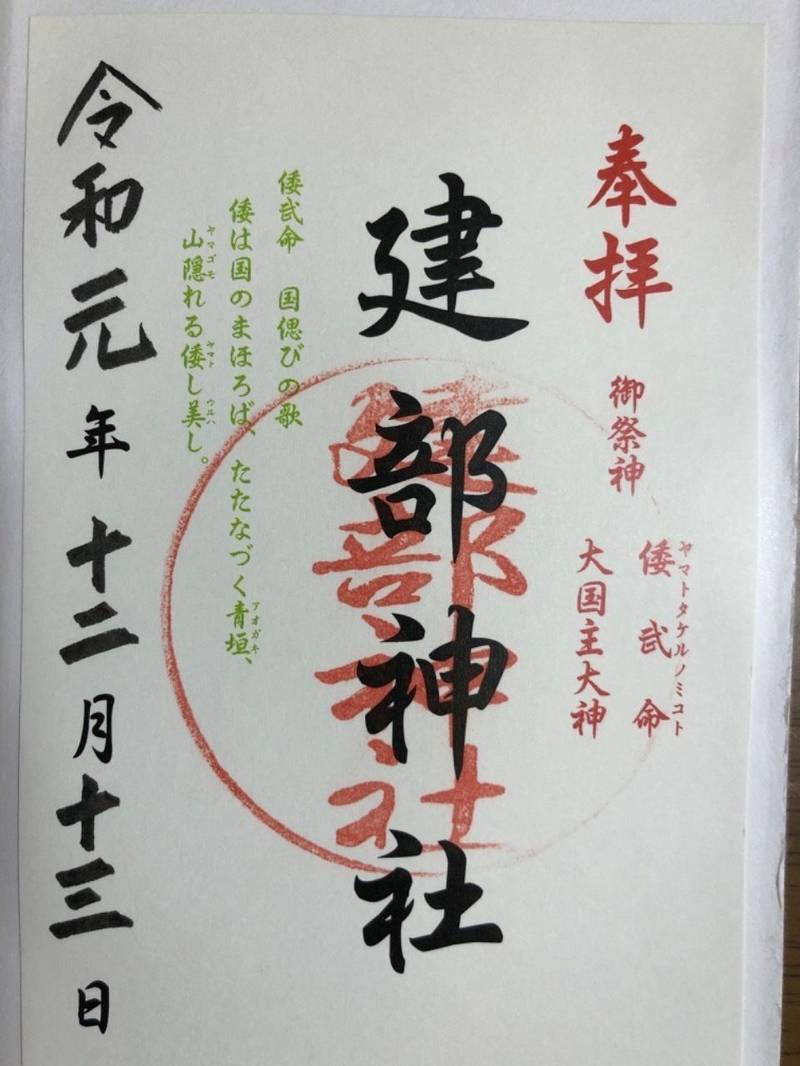 奉拝
御祭神
ヤマトタケルノミコト
倭武命
大国主大神
建部神社
建部神社
倭武命 国偲びの歌
倭は国のまほろば、たたなづく青垣、
アオガキ
山隠れる倭し美し。
ヤマゴモ ヤマト ウルハ
令和元年十二月十三日